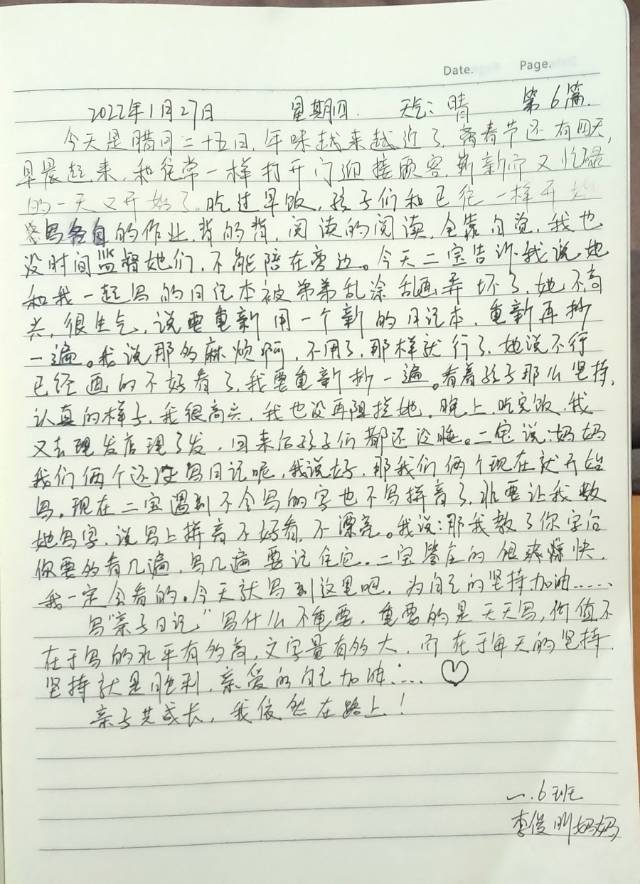 Date. Page.
2022年1月27日 星期四 天气:晴 第6篇.
今天是腊月二十五日,年味越来越近了,离春节还有四天,
早晨起来,和往常一样打开门迎接顾客,崭新而又忙碌
的一天又开始了,吃过早饭,孩子们和已往一样开始
写各自的作业,背的背,阅读的阅读,全靠自觉,我也
没时间监督她们,不能陪在旁边。今天二宝告诉我说她
和我一起写的日记本被弟弟乱涂乱画弄坏了,她不高
兴,很生气,说要重新用一个新的日记本,重新再抄
一遍。我说那多麻烦啊,不用了,那样就行了,她说不行
已经画的不好看了,我要重新抄一遍。看着孩子那么坚持,
认真的样子,我很高兴,我也没再阻拦她,晚上,吃完饭,我
又去理发店理了发,回来后孩子们都还没睡。二宝说:妈妈
我们俩个还没写日记呢,我说好,那我们俩个现在就开始
写,现在二宝遇到不会写的字也不写拼音了,非要让我教
她写字,说写上拼音不好看,不漂亮。我说:那我教了你字后
你要多看几遍,写几遍要记住它,二宝答应的很爽快,
我一定会看的。今天就写到这里吧,为自己的坚持加油......
写"亲子日记"写什么不重要,重要的是天天写,价值不
在于写的水平有多高,文字量有多大,而在于每天的坚持.
坚持就是胜利,亲爱的自己加油:... ♡
亲子共成长,我依然在路上!
一.6班
李俊 妈妈